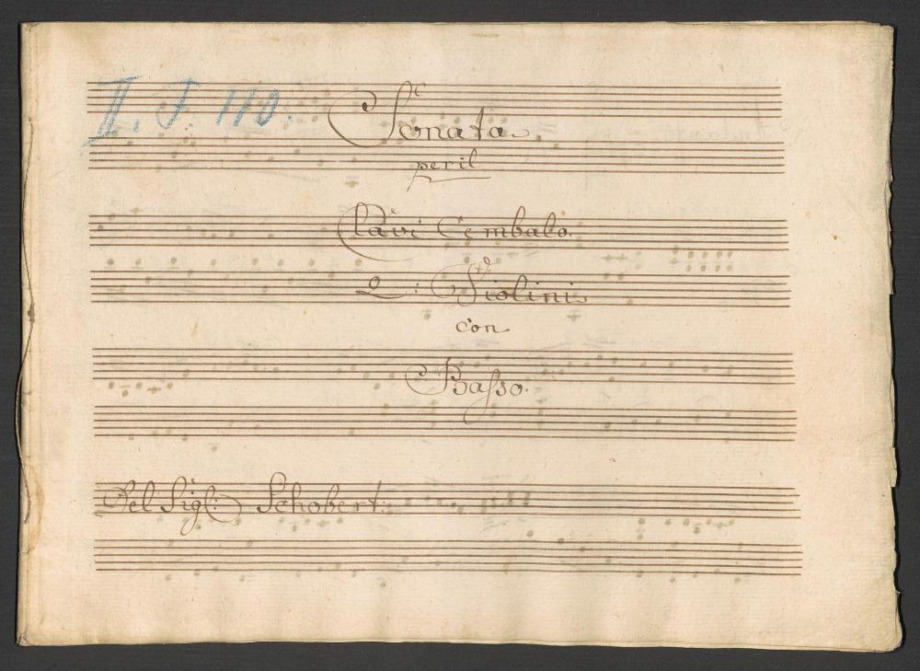 II. J. 110.
Sonata.
per il
Clavi Cembalo.
2: Violini
con
Basso.
Del Sigl: Schobert.